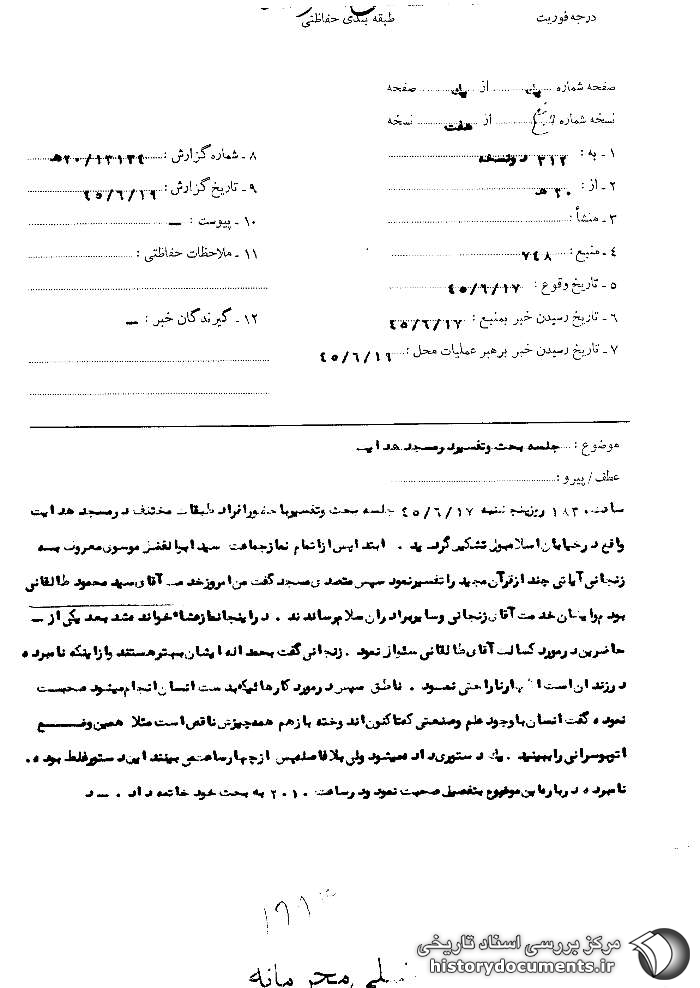 درجه فوریت
طبقه بندی حفاظتی
صفحه شماره یک از یک صفحه
نسخه شماره از هفت نسخه
۱ ـ به : ۳۱۲ دونسخه
۲ ـ از : ۲۰ هـ
۳ ـ منشأ :
۴ ـ منبع : ۷۴۸
۵ ـ تاریخ وقوع : ۴۵/۶/۱۷
۶ ـ تاریخ رسیدن خبر بمنبع : ۴۵/۶/۱۷
۷ ـ تاریخ رسیدن خبر برهبر عملیات محل : ۴۵/۶/۱۹
۸ ـ شماره گزارش : ۲۰/۱۳۱۳۴هـ
۹ ـ تاریخ گزارش : ۴۵/۶/۱۹
۱۰ ـ پیوست : ـ
۱۱ ـ ملاحظات حفاظتی :
۱۲ ـ گیرندگان خبر : ـ
موضوع : جلسه بحث وتفسیردرمسجد هدایت
عطف / پیرو :
ساعت ۱۸۳۰ روزپنجشنبه ۴۵/۶/۱۷ جلسه بحث وتفسیرباحضورافراد طبقات مختلف درمسجد هدایت
واقع درخیابان اسلامبول تشکیل گردید . ابتدا پس ازاتمام نمازجماعت سید ابوالفضل موسوی معروف به
زنجانی آیاتی چند ازقرآن مجید راتفسیرنمود سپس متصدی مسجد گفت من امروزخدمت آقای سید محمود طالقانی
بودم وایشان خدمت آقای زنجانی وسایربرادران سلام رساندند . دراینجانمازعشاء خوانده شد بعد یکی از ـ
حاضرین درمورد کسالت آقای طالقانی سئوال نمود . زنجانی گفت بحمداله ایشان بهترهستند وازاینکه نامبرده
درزندان است اظهارناراحتی نمود . ناطق سپس درمورد کارهائیکه بدست انسان انجام میشود صحبت
نموده گفت انسان باوجود علم وصنعتی که تاکنون اندوخته بازهم همه چیزش ناقص است مثلا همین وضع
اتوبوسرانی راببینید . یک دستوری داده میشود ولی بلافاصله پس ازچهارساعت می بینند این دستورغلط بوده .
نامبرده درباره این موضوع بتفصیل صحبت نمود ودرساعت ۲۰۱۰ به بحث خود خاتمه داد . ـ د
۱۹۱
خیلی محرمانه
مرکز بررسی اسناد تاریخی
historydocuments.ir